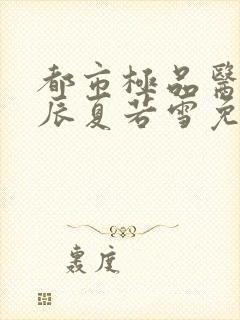 都市極品醫
辰夏若雪免
度